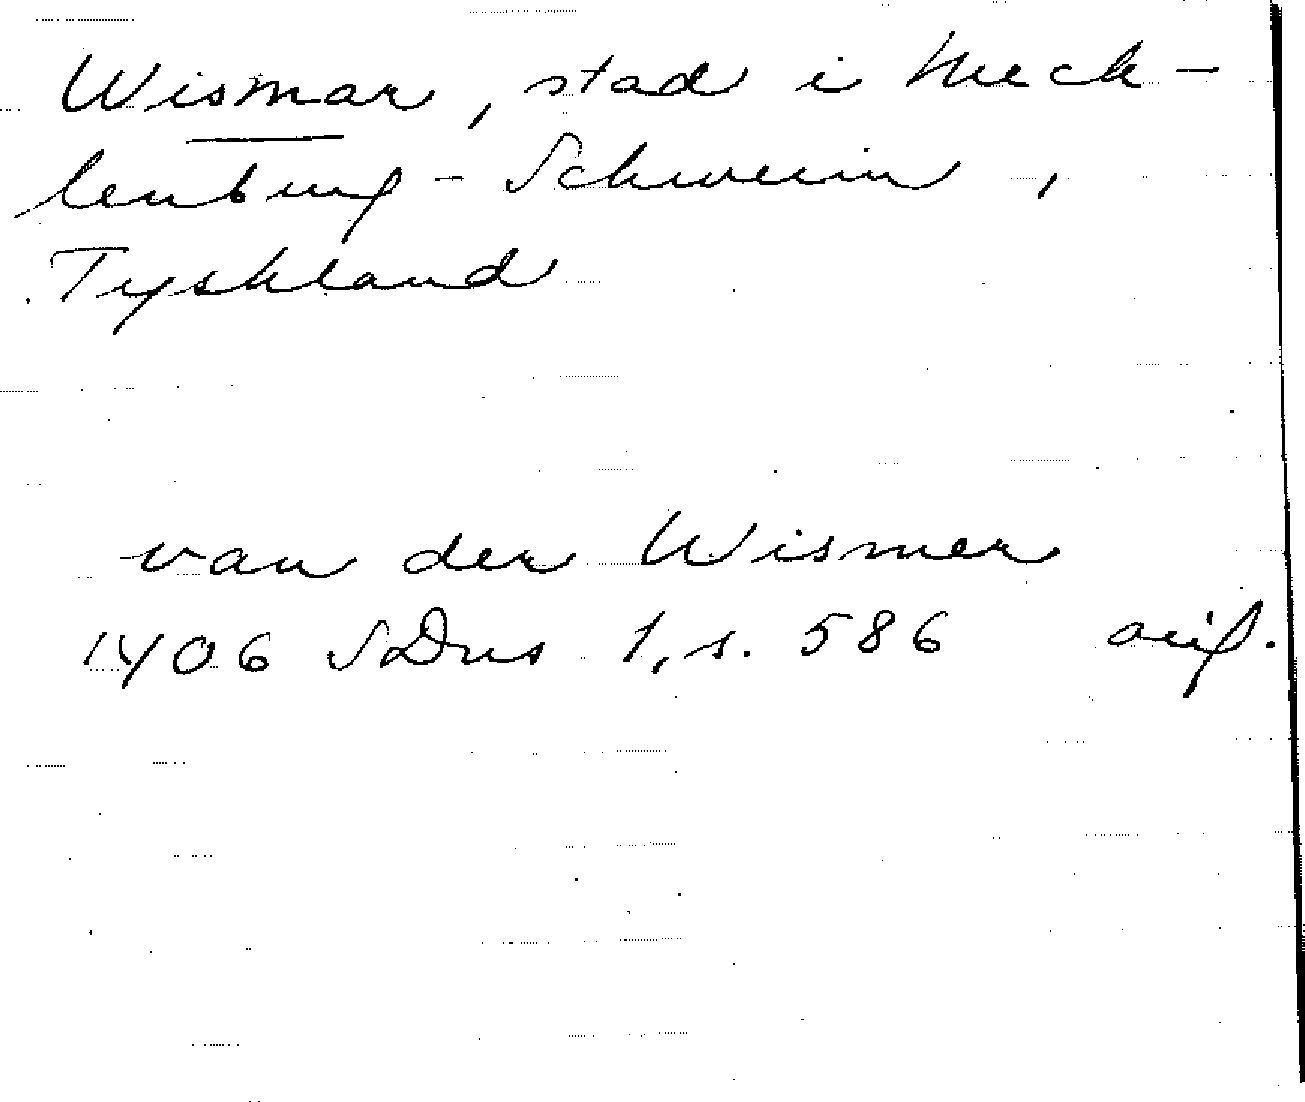 Wismar, stad i Meck-
lenburg-Schwerin,
Tyskland
van der Wismer
1406 SDns 1, s. 586 orig.